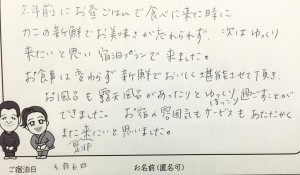 2年前にお昼ごはんで食べに来た時に
カニの新鮮でお美味さが忘れられず、次はゆっくり
来たいと思い宿泊プランで来ました。
お食事は変わらず新鮮でおいしく堪能させて頂き、
お風呂も露天風呂があったりとゆっくり過ごすことが
ぽっこり
できました。お宿の雰囲気もサービスもあたたかく
また来たいと思いました。
是非
ご宿泊日 5月6日 お名前(匿名可)